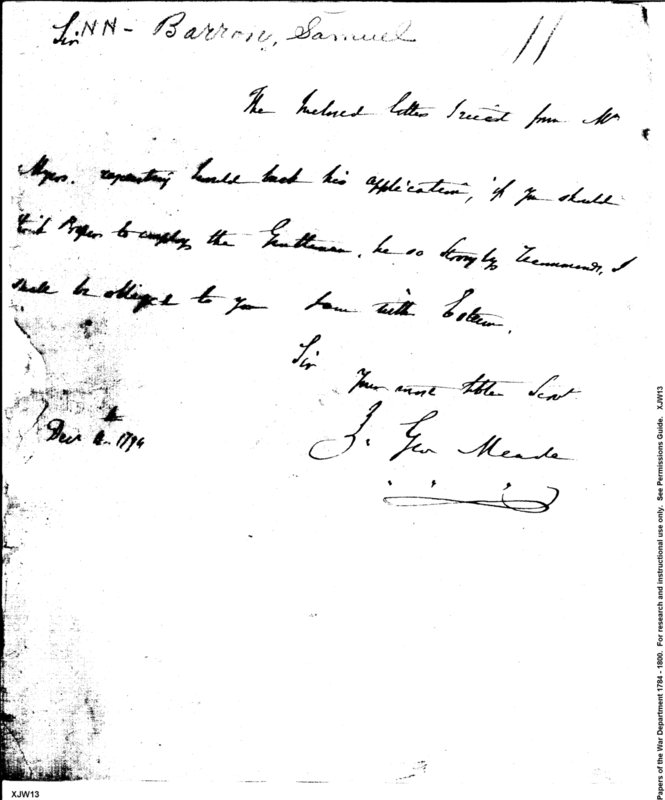 NN - Barron, Samuel
11
Sir
The Inclosed letter I rec'd from Mr
Myers. requesting I would back his application, if you shall
think Proper to employ the Gentleman, he so Strongly Recommends, I
shall be obliged to you I am with Esteem.
Sir
Your most Obdn Servt
Geo Meade
Decr 1794
Papers of the War Department 1784 - 1800. For research and instructional use only. See Permissions Guide. XJW13
XJW13